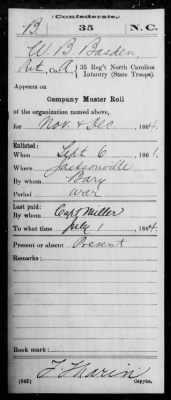 Confederate.
B. 35 N.C.
W. B. Basden
Pvt, Co. A, 35 Reg't North Carolina
Infantry (State Troops).
Appears on
Company Muster Roll
of the organization named above,
for Nov. & Dec., 1864.
Enlisted:
When Sept 6, 1861.
Where Jacksonville
By whom
Period war
Last paid:
By whom Capt Miller
To what time July 1, 1864.
Present or absent Present
Remarks:
Book mark:
(642) Copyist.